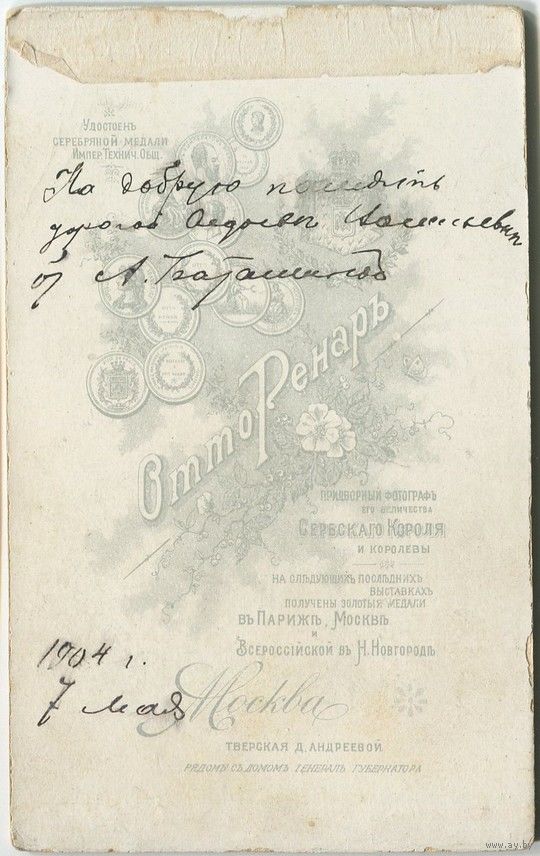 Удостоенъ
серебряной медали
Импер. Технич. Общ.
На добрую память
дорогой
от А.
Отто Ренаръ
придворный фотографъ
его величества
Сербскаго Короля
и королевы
на слѣдующихъ послѣднихъ
выставкахъ
получены золотыя медали
въ Парижѣ, Москвѣ
и
Всероссійской въ Н. Новгородѣ
1904 г.
7 мая
Москва
Тверская д. Андреевой
рядомъ съ домомъ Генералъ Губернатора
www.ay.by